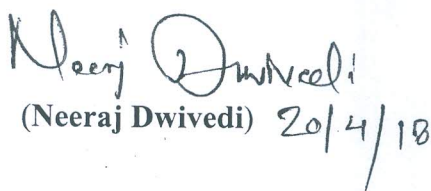 Neeraj Dwivedi
(Neeraj Dwivedi) 20/4/18